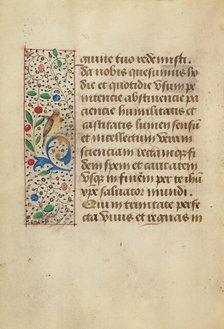 guine tuo redemisti.
da nobis quesumus ho
die et quotidie usum pe
nitencie abstinencie pa
ciencie humilitatis et
castitatis lumen sensum
et intellectum veram
scienciam veramque fi
dem spem et caritatem
usque in finem per te ihu
xpe salvator mundi.
Qui in trinitate perfe
cta vivis et regnas in